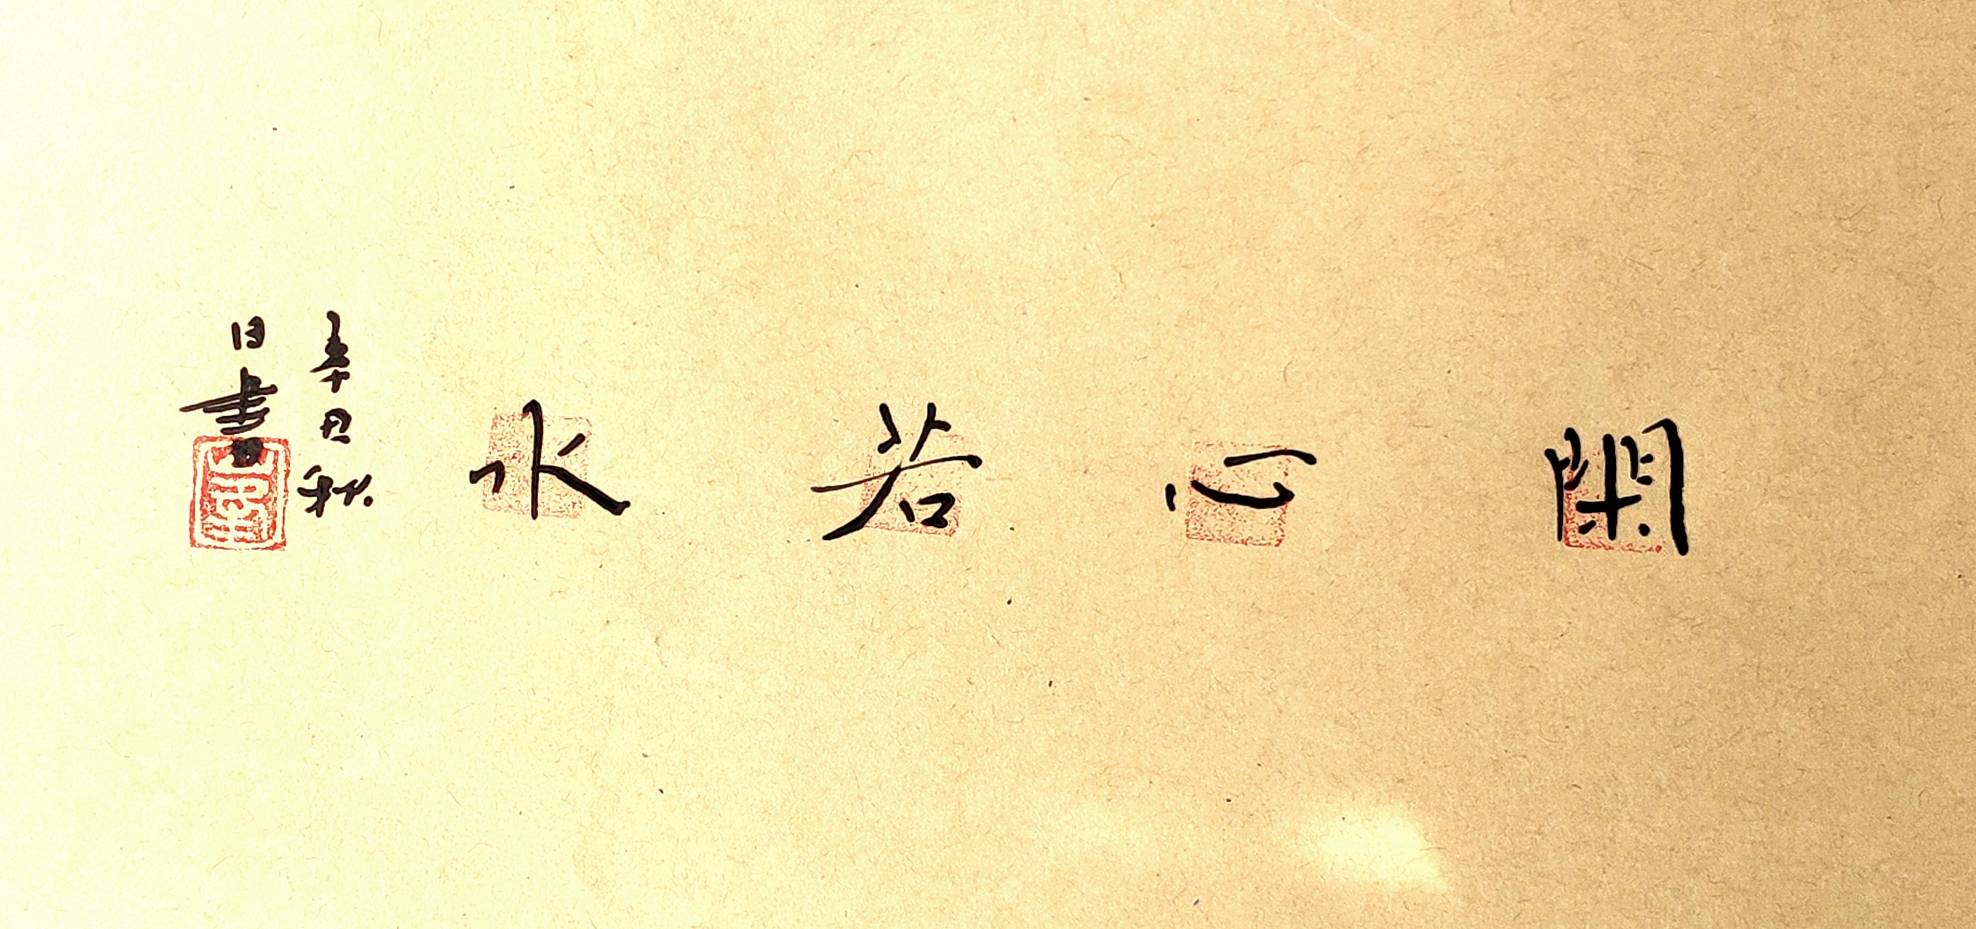 閑心若水
辛丑秋
日書